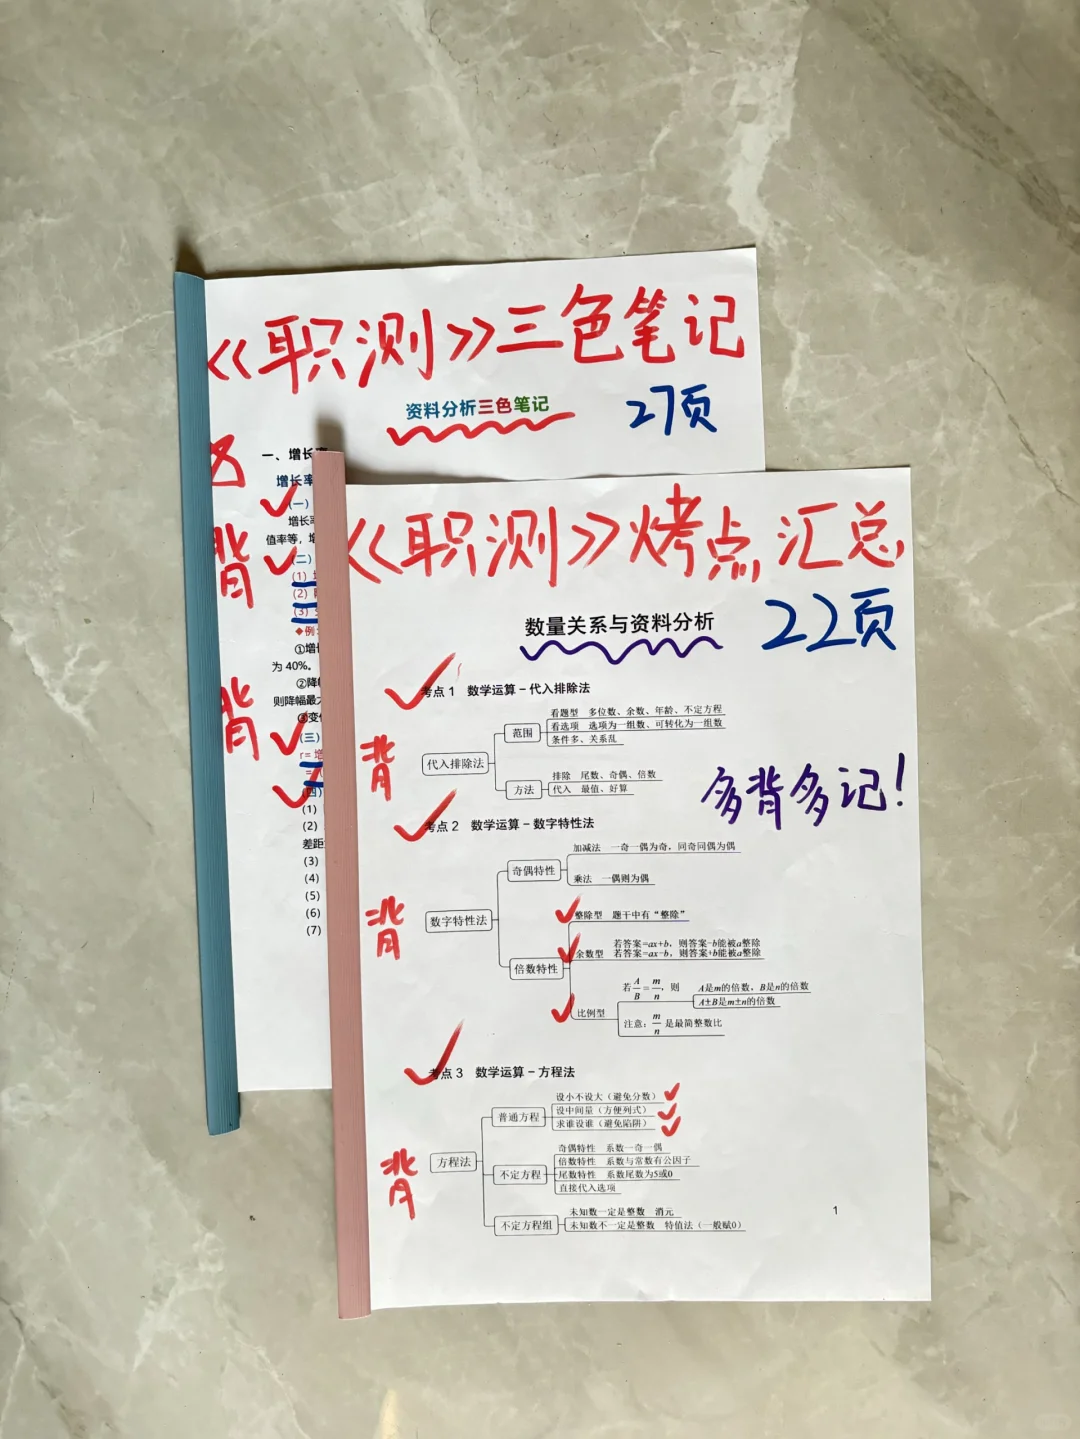 《职测》三色笔记
资料分析三色笔记
27页
一、增长率
增长率
背
(一)
增长率
值率等，增
(二)
(1)
(2)
(3)
◆例
①增长
为 40%。
②降
则降幅最大
③变
背
(三)
r= 增
=
(四)
(1)
(2)
差距
(3)
(4)
(5)
(6)
(7)
《职测》烤点汇总
数量关系与资料分析
22页
考点 1 数学运算－代入排除法
背
代入排除法
范围
看题型 多位数、余数、年龄、不定方程
看选项 选项为一组数、可转化为一组数
条件多、关系乱
方法
排除 尾数、奇偶、倍数
代入 最值、好算
多背多记！
考点 2 数学运算－数字特性法
背
数字特性法
奇偶特性
加减法 一奇一偶为奇，同奇同偶为偶
乘法 一偶则为偶
倍数特性
整除型 题干中有“整除”
余数型
若答案=ax+b，则答案-b能被a整除
若答案=ax-b，则答案+b能被a整除
比例型
若A/B=m/n，则
A是m的倍数，B是n的倍数
A±B是m±n的倍数
注意：m/n是最简整数比
考点 3 数学运算－方程法
背
方程法
普通方程
设小不设大（避免分数）
设中间量（方便列式）
求谁设谁（避免陷阱）
不定方程
奇偶特性 系数一奇一偶
倍数特性 系数与常数有公因子
尾数特性 系数尾数为5或0
直接代入选项
不定方程组
未知数一定是整数 消元
未知数不一定是整数 特值法（一般赋0）
1